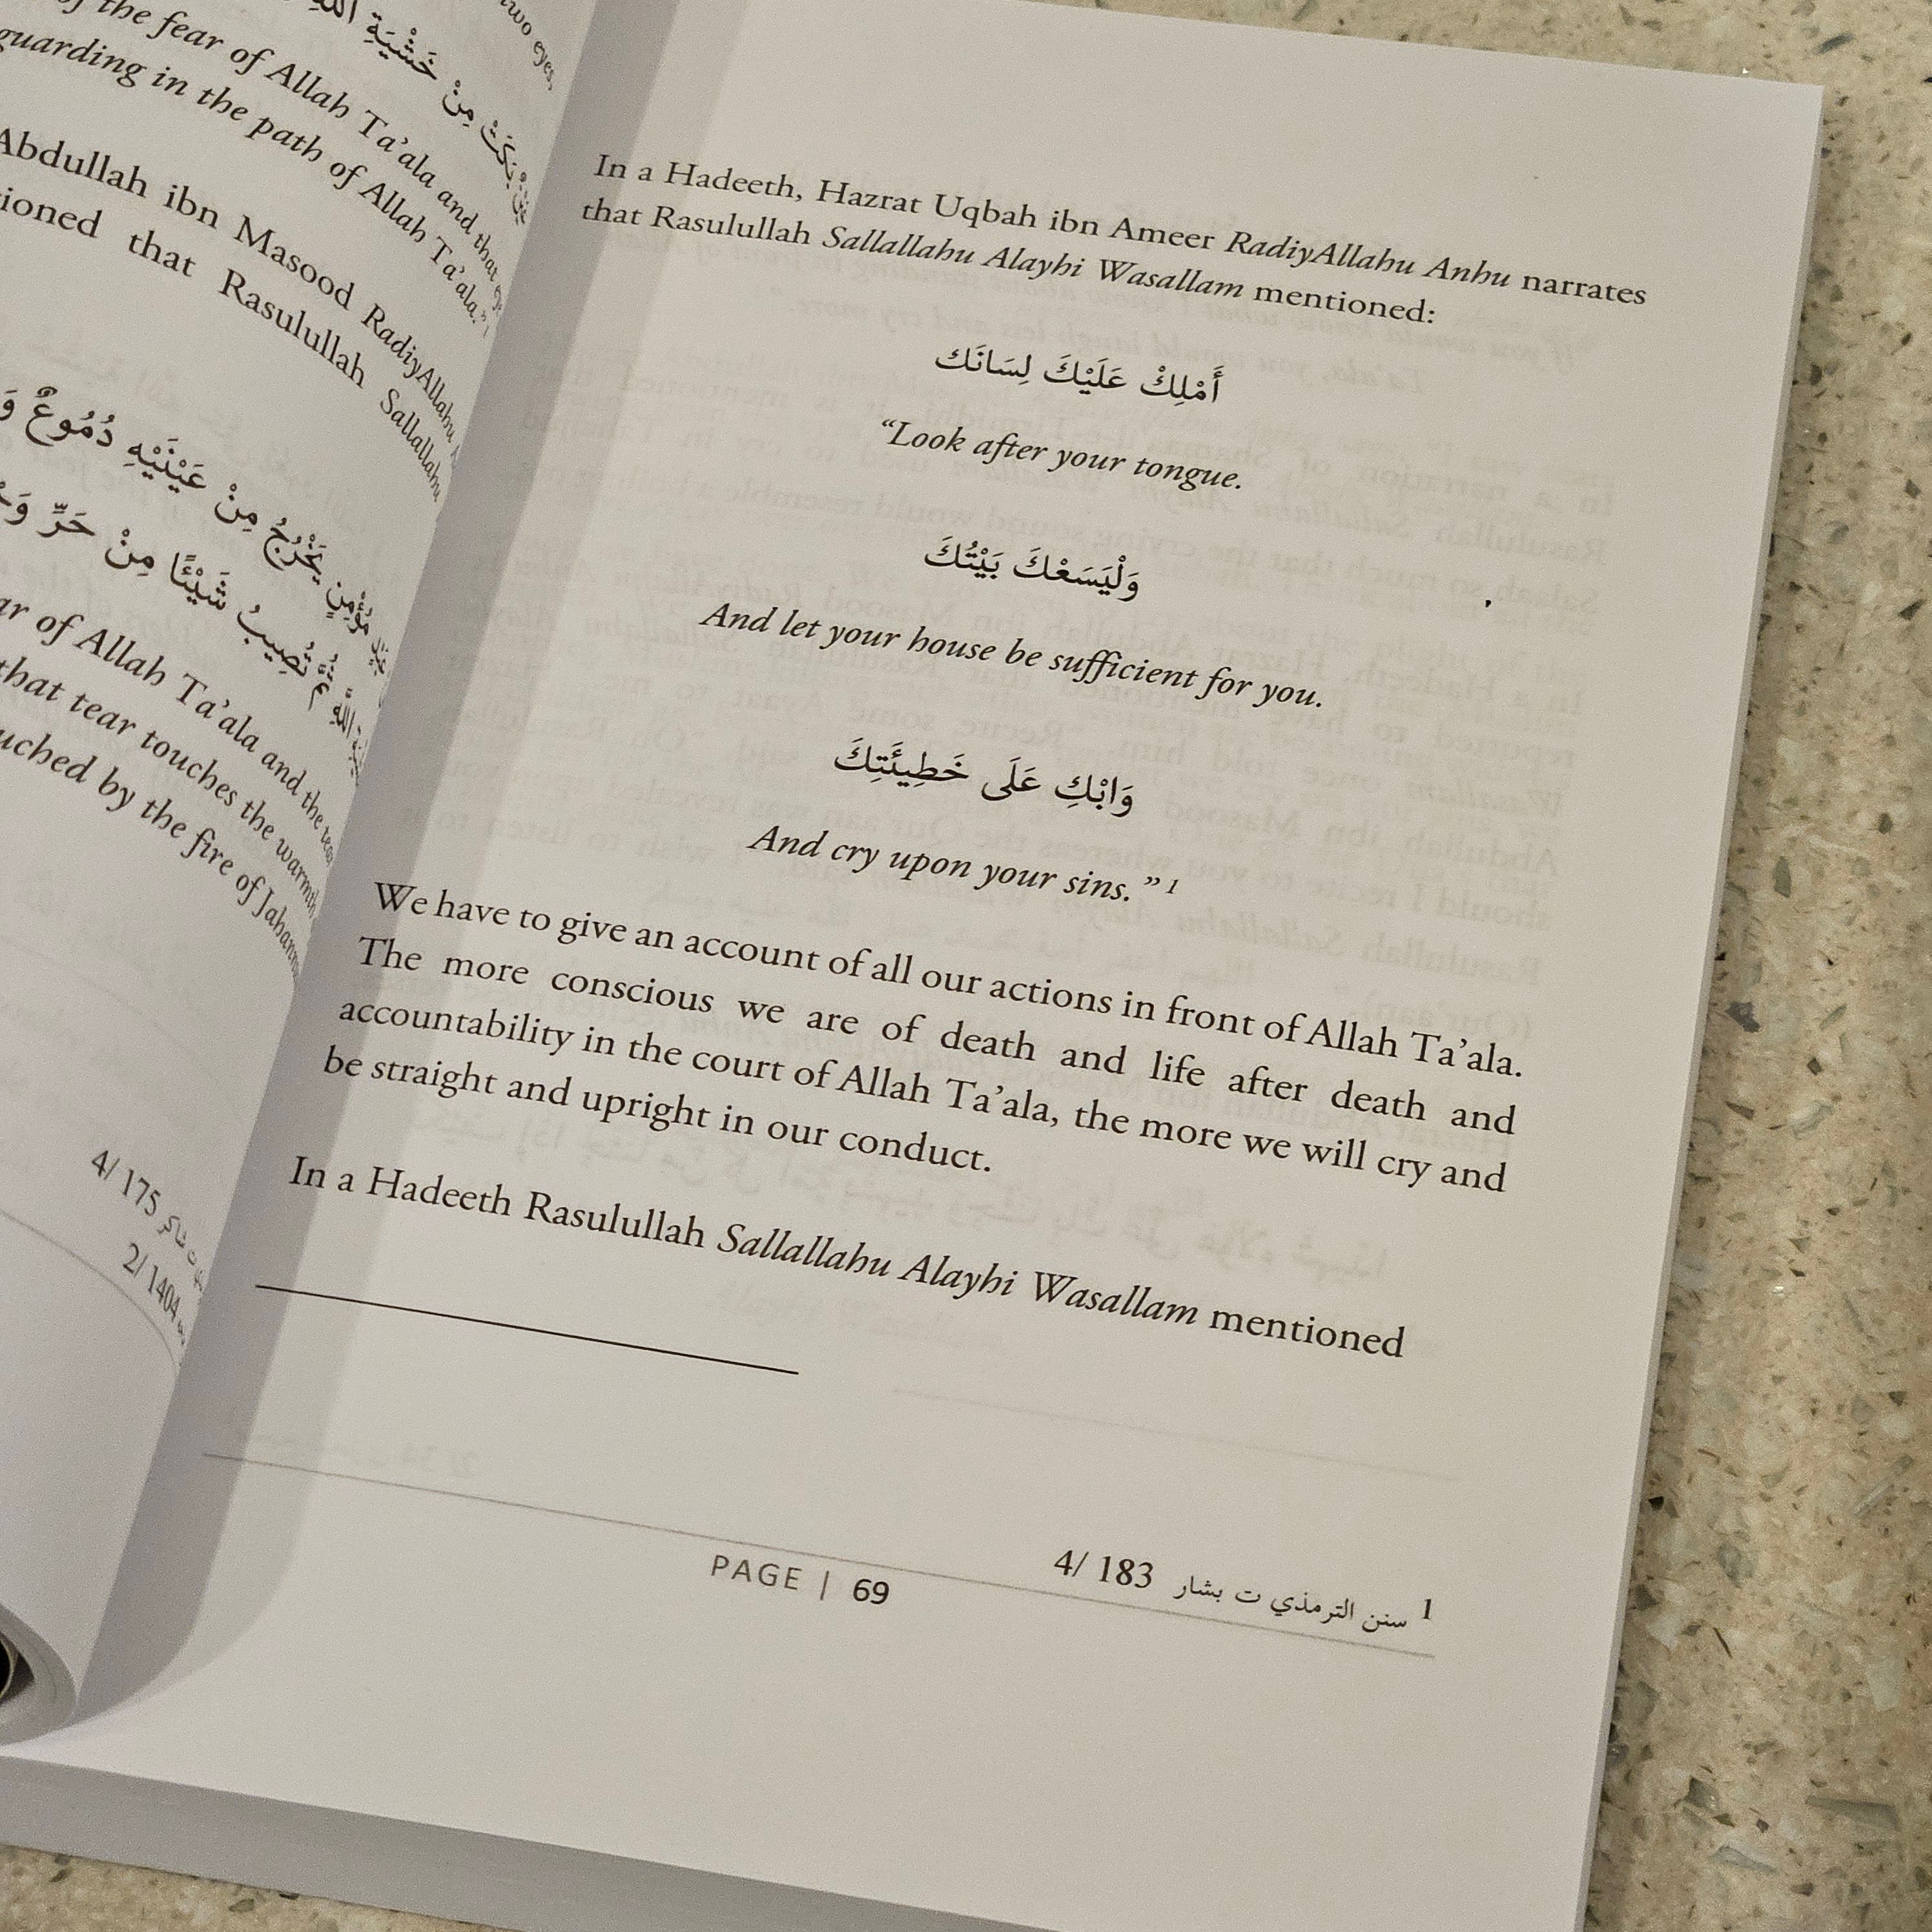 two eyes,
خَشْيَةِ
بَكَتْ مِنْ
the fear of Allah Ta'ala and that
guarding in the path of Allah Ta'ala."
Abdullah ibn Masood RadiyAllahu
that Rasulullah Sallallahu
يَخْرُجُ مِنْ عَيْنَيْهِ دُمُوعٌ
تُصِيبُ شَيْئًا مِنْ حَرِّ
of Allah Ta'ala and the tear
that tear touches the warmth
by the fire of
4/ 175
2/ 1404
In a Hadeeth, Hazrat Uqbah ibn Ameer RadiyAllahu Anhu narrates
that Rasulullah Sallallahu Alayhi Wasallam mentioned:
أَمْلِكْ عَلَيْكَ لِسَانَك
“Look after your tongue.
وَلْيَسَعْكَ بَيْتُكَ
And let your house be sufficient for you.
وَابْكِ عَلَى خَطِيئَتِكَ
And cry upon your sins.” 1
We have to give an account of all our actions in front of Allah Ta’ala.
The more conscious we are of death and life after death and
accountability in the court of Allah Ta’ala, the more we will cry and
be straight and upright in our conduct.
In a Hadeeth Rasulullah Sallallahu Alayhi Wasallam mentioned
1 سنن الترمذي ت بشار 4/ 183
PAGE | 69